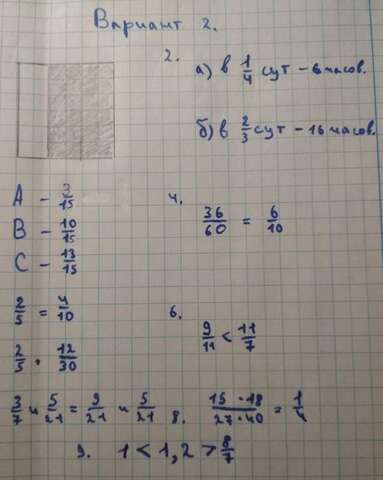 Вариант 2.
2. а) в 1/4 сут – 6 часов.
б) в 2/3 сут – 16 часов.
A – 3/15
B – 10/15
C – 13/15
4. 36/60 = 6/10
2/5 = 4/10
6. 9/11 < 11/7
2/5 , 12/30
3/7 и 5/21 = 9/21 и 5/21
8. 15 · 18 / 27 · 40 = 1/4
9. 1 < 1,2 > 8/7